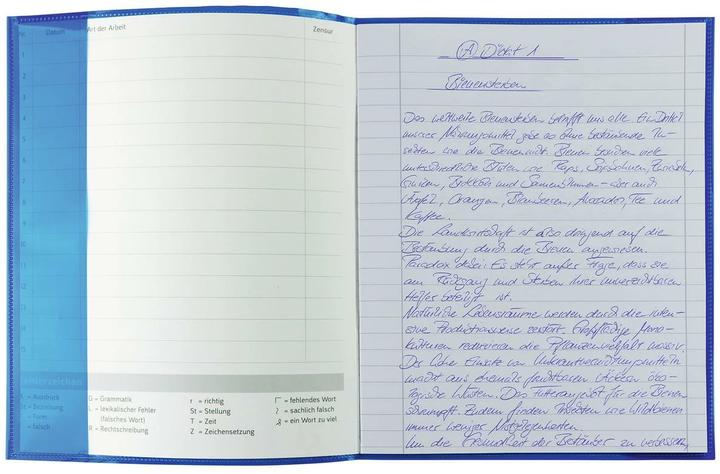 Nr. Datum Art der Arbeit Zensur
1
2
3
4
5
6
7
8
9
10
11
12
13
14
15
Korrekturzeichen
A = Ausdruck
Bz = Beziehung
= Form
= falsch
G = Grammatik
L = lexikalischer Fehler
(falsches Wort)
R = Rechtschreibung
r = richtig
St = Stellung
T = Zeit
Z = Zeichensetzung
= fehlendes Wort
= sachlich falsch
= ein Wort zu viel
A Diktat 1
Bienensterben
Das weltweite Bienensterben betrifft uns alle. Ein Drittel
unserer Nahrungsmittel gäbe es ohne bestäubende In-
sekten wie die Biene nicht. Bienen bestäuben viele
unterschiedliche Blüten wie Raps, Sojabohnen,
Gurken, Brokkoli und Sonnenblumen - aber auch
Äpfel, Orangen, Blaubeeren, Avocados, Tee und
Kaffee.
Die Landwirtschaft ist also dringend auf die
Bestäubung durch die Bienen angewiesen.
Paradox dabei: Es steht außer Frage, dass sie
am Rückgang und Sterben ihrer unverzichtbaren
Helfer beteiligt ist.
Natürliche Lebensräume werden durch die inten-
sive Produktionsweise zerstört. Großflächige Mono-
kulturen reduzieren die Pflanzenvielfalt massiv.
Der hohe Einsatz von Unkrautvernichtungsmitteln
macht aus ehemals fruchtbaren Äckern öko-
logische Wüsten. Das Futterangebot für die Bienen
schrumpft. Zudem finden Insekten wie Wildbienen
immer weniger Nistgelegenheiten.
Um die Gesundheit der Bestäuber zu verbessern,